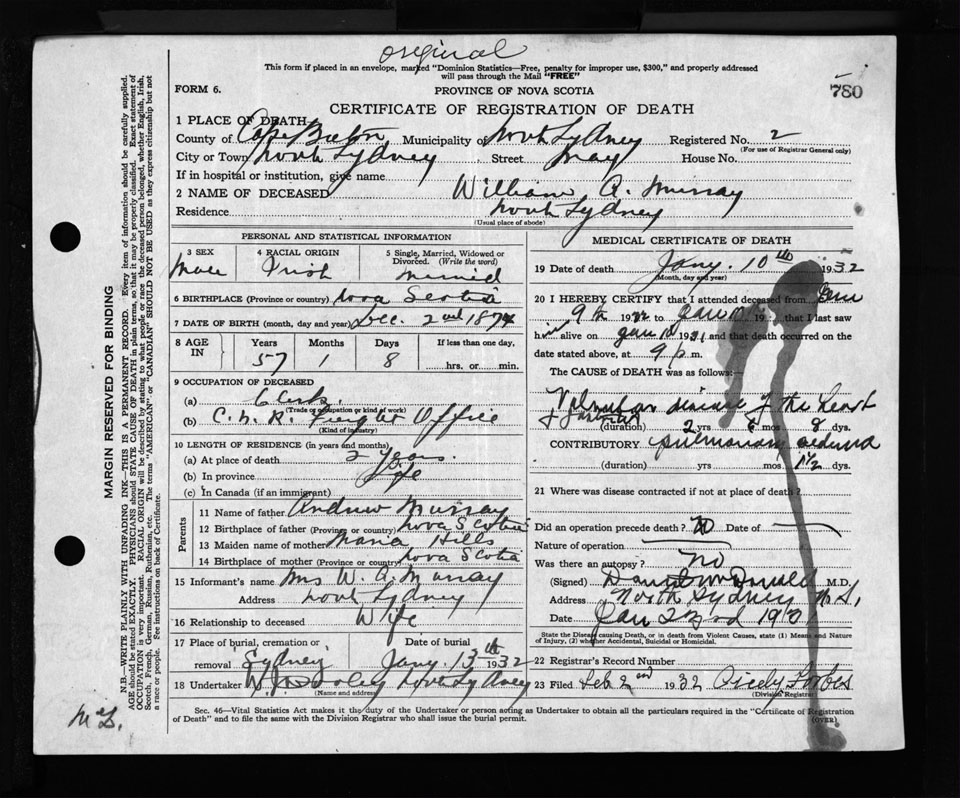 original
This form if placed in an envelope, marked "Dominion Statistics—Free, penalty for improper use, $300," and properly addressed
will pass through the Mail "FREE"
FORM 6.
PROVINCE OF NOVA SCOTIA
780
CERTIFICATE OF REGISTRATION OF DEATH
1 PLACE OF DEATH
County of Cape Breton Municipality of North Sydney Registered No. 2
(For use of Registrar General only)
City or Town North Sydney Street May House No.
If in hospital or institution, give name
2 NAME OF DECEASED William A. Murray
Residence North Sydney
(Usual place of abode)
PERSONAL AND STATISTICAL INFORMATION
3 SEX 4 RACIAL ORIGIN 5 Single, Married, Widowed or
Divorced. (Write the word)
Male Irish married
6 BIRTHPLACE (Province or country) Nova Scotia
7 DATE OF BIRTH (month, day and year) Dec. 2nd 1874
8 AGE IN Years Months Days If less than one day,
57 1 8 hrs. or min.
9 OCCUPATION OF DECEASED
(a) Clerk
(Trade or occupation or kind of work)
(b) C.N.R. Freight Office
(Kind of industry)
10 LENGTH OF RESIDENCE (in years and months)
(a) At place of death 2 years.
(b) In province Life
(c) In Canada (if an immigrant)
Parents
11 Name of father Andrew Murray
12 Birthplace of father (Province or country) Nova Scotia
13 Maiden name of mother Maria Hills
14 Birthplace of mother (Province or country) Nova Scotia
15 Informant's name Mrs W. A. Murray
Address North Sydney
16 Relationship to deceased Wife
17 Place of burial, cremation or Date of burial
removal Sydney Jany. 13th 1932
18 Undertaker North Sydney
(Name and address)
MEDICAL CERTIFICATE OF DEATH
19 Date of death Jany. 10th 1932
(Month, day and year)
20 I HEREBY CERTIFY that I attended deceased from Jan
9th 19 to Jan 10 19 that I last saw
him alive on Jan 10 1931 and that death occurred on the
date stated above, at 9 p.m.
The CAUSE of DEATH was as follows:
Valvular disease of the heart
(duration) 2 yrs 6 mos 8 dys.
CONTRIBUTORY pulmonary oedema
(duration) yrs mos 1½ dys.
21 Where was disease contracted if not at place of death?
Did an operation precede death? no Date of
Nature of operation
Was there an autopsy? no
(Signed) Daniel McDonald M.D.
Address North Sydney N.S.
Date Jan 23rd 19
State the Disease causing Death, or in death from Violent Causes, state (1) Means and Nature
of Injury, (2) whether Accidental, Suicidal or Homicidal.
22 Registrar's Record Number
23 Filed Feb 2nd 1932 Forbes
(Division Registrar)
Sec. 46—Vital Statistics Act makes it the duty of the Undertaker or person acting as Undertaker to obtain all the particulars required in the "Certificate of Registration
of Death" and to file the same with the Division Registrar who shall issue the burial permit.
(OVER)
MARGIN RESERVED FOR BINDING
N.B.—WRITE PLAINLY WITH UNFADING INK—THIS IS A PERMANENT RECORD. Every item of information should be carefully supplied.
AGE should be stated EXACTLY. PHYSICIANS should STATE CAUSE OF DEATH in plain terms, so that it may be properly classified. Exact statement of
OCCUPATION is very important. RACIAL ORIGIN will be described by stating to what people or race the deceased person belonged, whether English, Irish,
Scotch, French, German, Russian, Ruthenian, etc. The terms "AMERICAN" or "CANADIAN" SHOULD NOT BE USED as they express citizenship but not
a race or people. See instructions on back of Certificate.